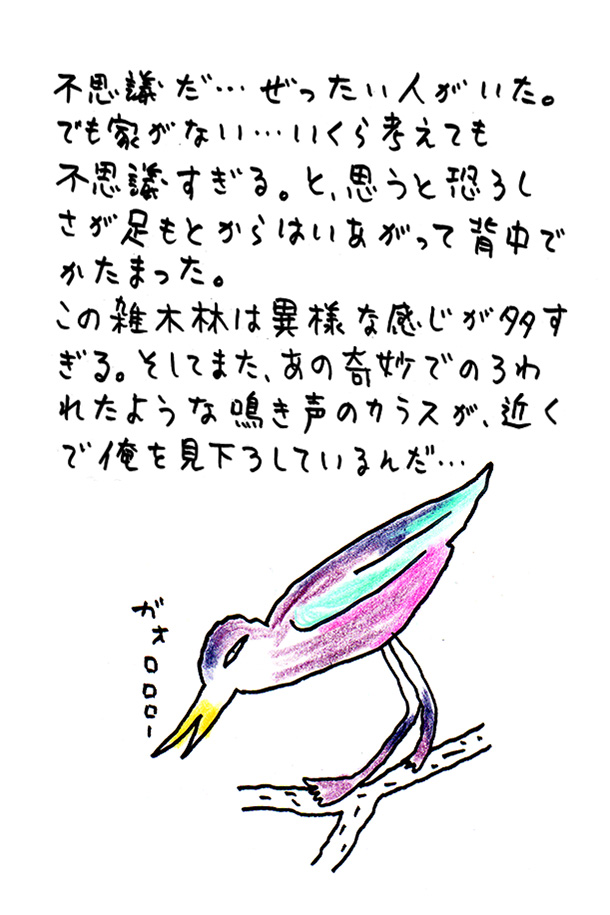 不思議だ…ぜったい人がいた。
でも家がない…いくら考えても
不思議すぎる。と、思うと恐ろし
さが足もとからはいあがって背中で
かたまった。
この雑木林は異様な感じが多す
ぎる。そしてまた、あの奇妙でのろわ
れたような鳴き声のカラスが、近く
で俺を見下ろしているんだ…
ガオロロロー